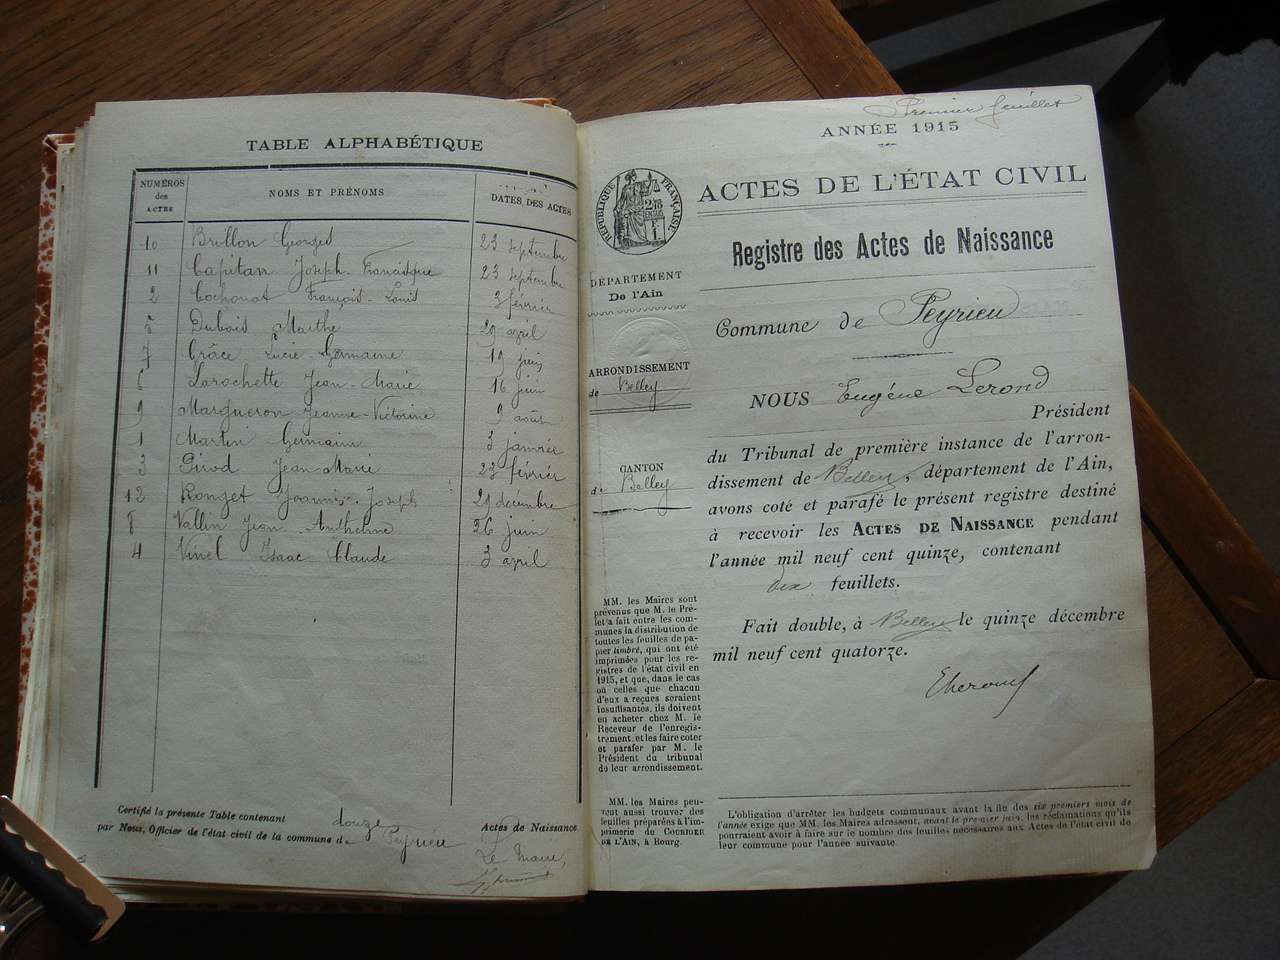 TABLE ALPHABÉTIQUE
NUMÉROS des ACTES NOMS ET PRÉNOMS DATES DES ACTES
10 Brillon Georges 23 septembre
11 Capitan Joseph Francisque 23 septembre
2 Cochonat François-Louis 3 février
5 Dubois Marthe 29 avril
7 Grâce Lucie Germaine 19 juin
6 Larochette Jean-Marie 16 juin
9 Margueron Jeanne-Victorine 9 août
1 Martin Germain 3 janvier
3 Girod Jean Marie 23 février
12 Ronzet Joannès-Joseph 29 décembre
8 Vallin Jean-Anthelme 26 juin
4 Vinel Isaac Claude 3 avril
Certifié la présente Table contenant douze Actes de Naissance
par Nous, Officier de l'état civil de la commune de Peyrieu
Le Maire,
Premier feuillet
ANNÉE 1915
ACTES DE L'ÉTAT CIVIL
Registre des Actes de Naissance
RÉPUBLIQUE FRANÇAISE
DÉPARTEMENT
De l'Ain
ARRONDISSEMENT
de Belley
CANTON
de Belley
Commune de Peyrieu
NOUS Eugène Lerond
Président
du Tribunal de première instance de l'arron-
dissement de Belley, département de l'Ain,
avons coté et parafé le présent registre destiné
à recevoir les ACTES DE NAISSANCE pendant
l'année mil neuf cent quinze, contenant
dix feuillets.
Fait double, à Belley le quinze décembre
mil neuf cent quatorze.
ELerond
MM. les Maires sont
prévenus que M. le Pré-
fet a fait entre les com-
munes la distribution de
toutes les feuilles de pa-
pier timbré, qui ont été
imprimées pour les re-
gistres de l'état civil en
1915, et que, dans le cas
où celles que chacun
d'eux a reçues seraient
insuffisantes, ils doivent
en acheter chez M. le
Receveur de l'enregis-
trement, et les faire coter
et parafer par M. le
Président du tribunal
de leur arrondissement.
MM. les Maires peu-
vent aussi trouver des
feuilles préparées à l'im-
primerie du COURRIER
DE L'AIN, à Bourg.
L'obligation d'arrêter les budgets communaux avant la fin des six premiers mois de
l'année exige que MM. les Maires adressent, avant le premier juin, les réclamations qu'ils
pourraient avoir à faire sur le nombre des feuilles nécessaires aux Actes de l'état civil de
leur commune pour l'année suivante.